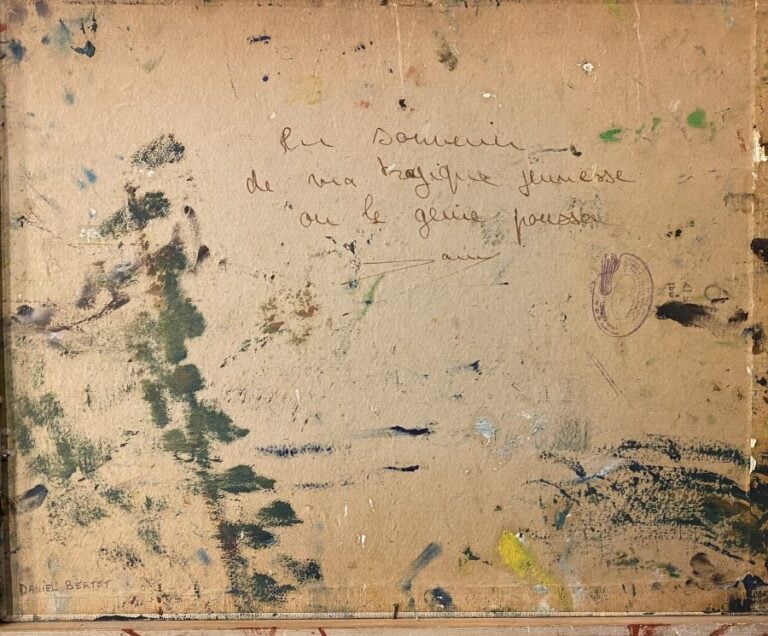 En souvenir
de ma tragique jeunesse
ou le génie poussa
DANIEL BERTOT